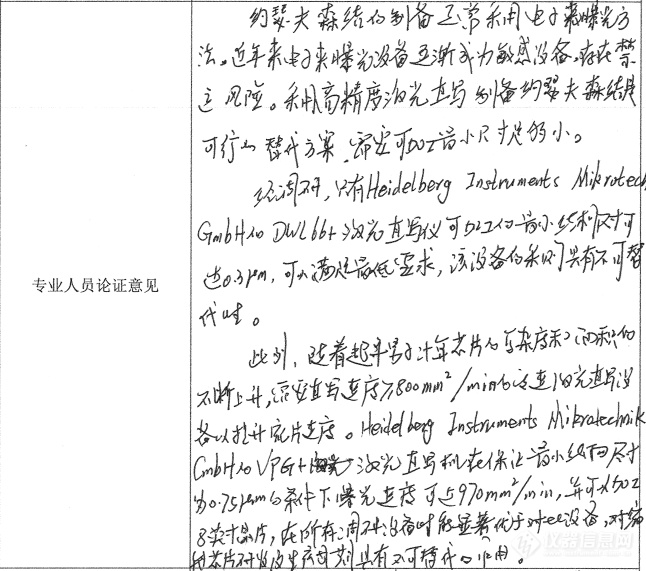 约瑟夫森结的制备通常采用电子束曝光方
法。近年来电子束曝光设备逐渐成为敏感设备,存在禁
运风险。采用高精度激光直写制备约瑟夫森结是
可行的替代方案,需要可加工最小尺寸足够小。
经调研,只有Heidelberg Instruments Mikrotech
GmbH的DWL66+激光直写仪可加工的最小结构尺寸可
达0.3μm,可以满足最低要求,该设备的采购具有不可替
代性。
专业人员论证意见
此外,随着超导量子计算芯片的复杂度和面积的
不断上升,需要直写速度≥800mm²/min的高速激光直写设
备以提升流片速度。Heidelberg Instruments Mikrotechnik
GmbH的VPG+激光直写机在保证最小线宽尺寸
为0.75μm的条件下曝光速度可达970mm²/min,并可以加工
8英寸晶片,在所有调研设备中显著优于设备,对
芯片研发及生产具有不可替代的作用。